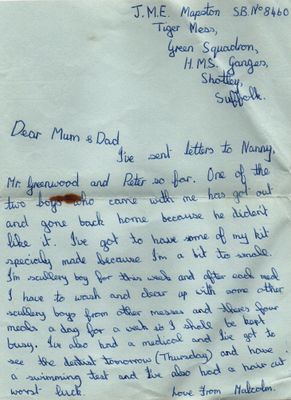 J.M.E. Mapston S.B.No 8460
Tiger Mess,
Green Squadron,
H.M.S. Ganges,
Shotley,
Suffolk.
Dear Mum & Dad
I've sent letters to Nanny,
Mr. Greenwood and Peter so far. One of the
two boys who came with me has got out
and gone back home because he dident
like it. I've got to have some of my kit
specialy made because I'm a bit to small.
I'm scullery boy for this week and after each meal
I have to wash and clear up with some other
scullery boys from other messes and theres four
meals a day for a week so I shall be kept
busy. I've also had a medical and I've got to
see the dentist tomorrow (Thursday) and have
a swimming test and I've also had a hair cut
worst luck. Love From Malcolm.